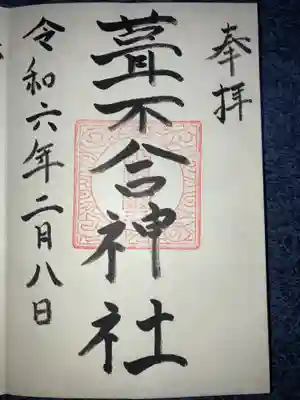 奉拝
葺不合神社
令和六年二月八日